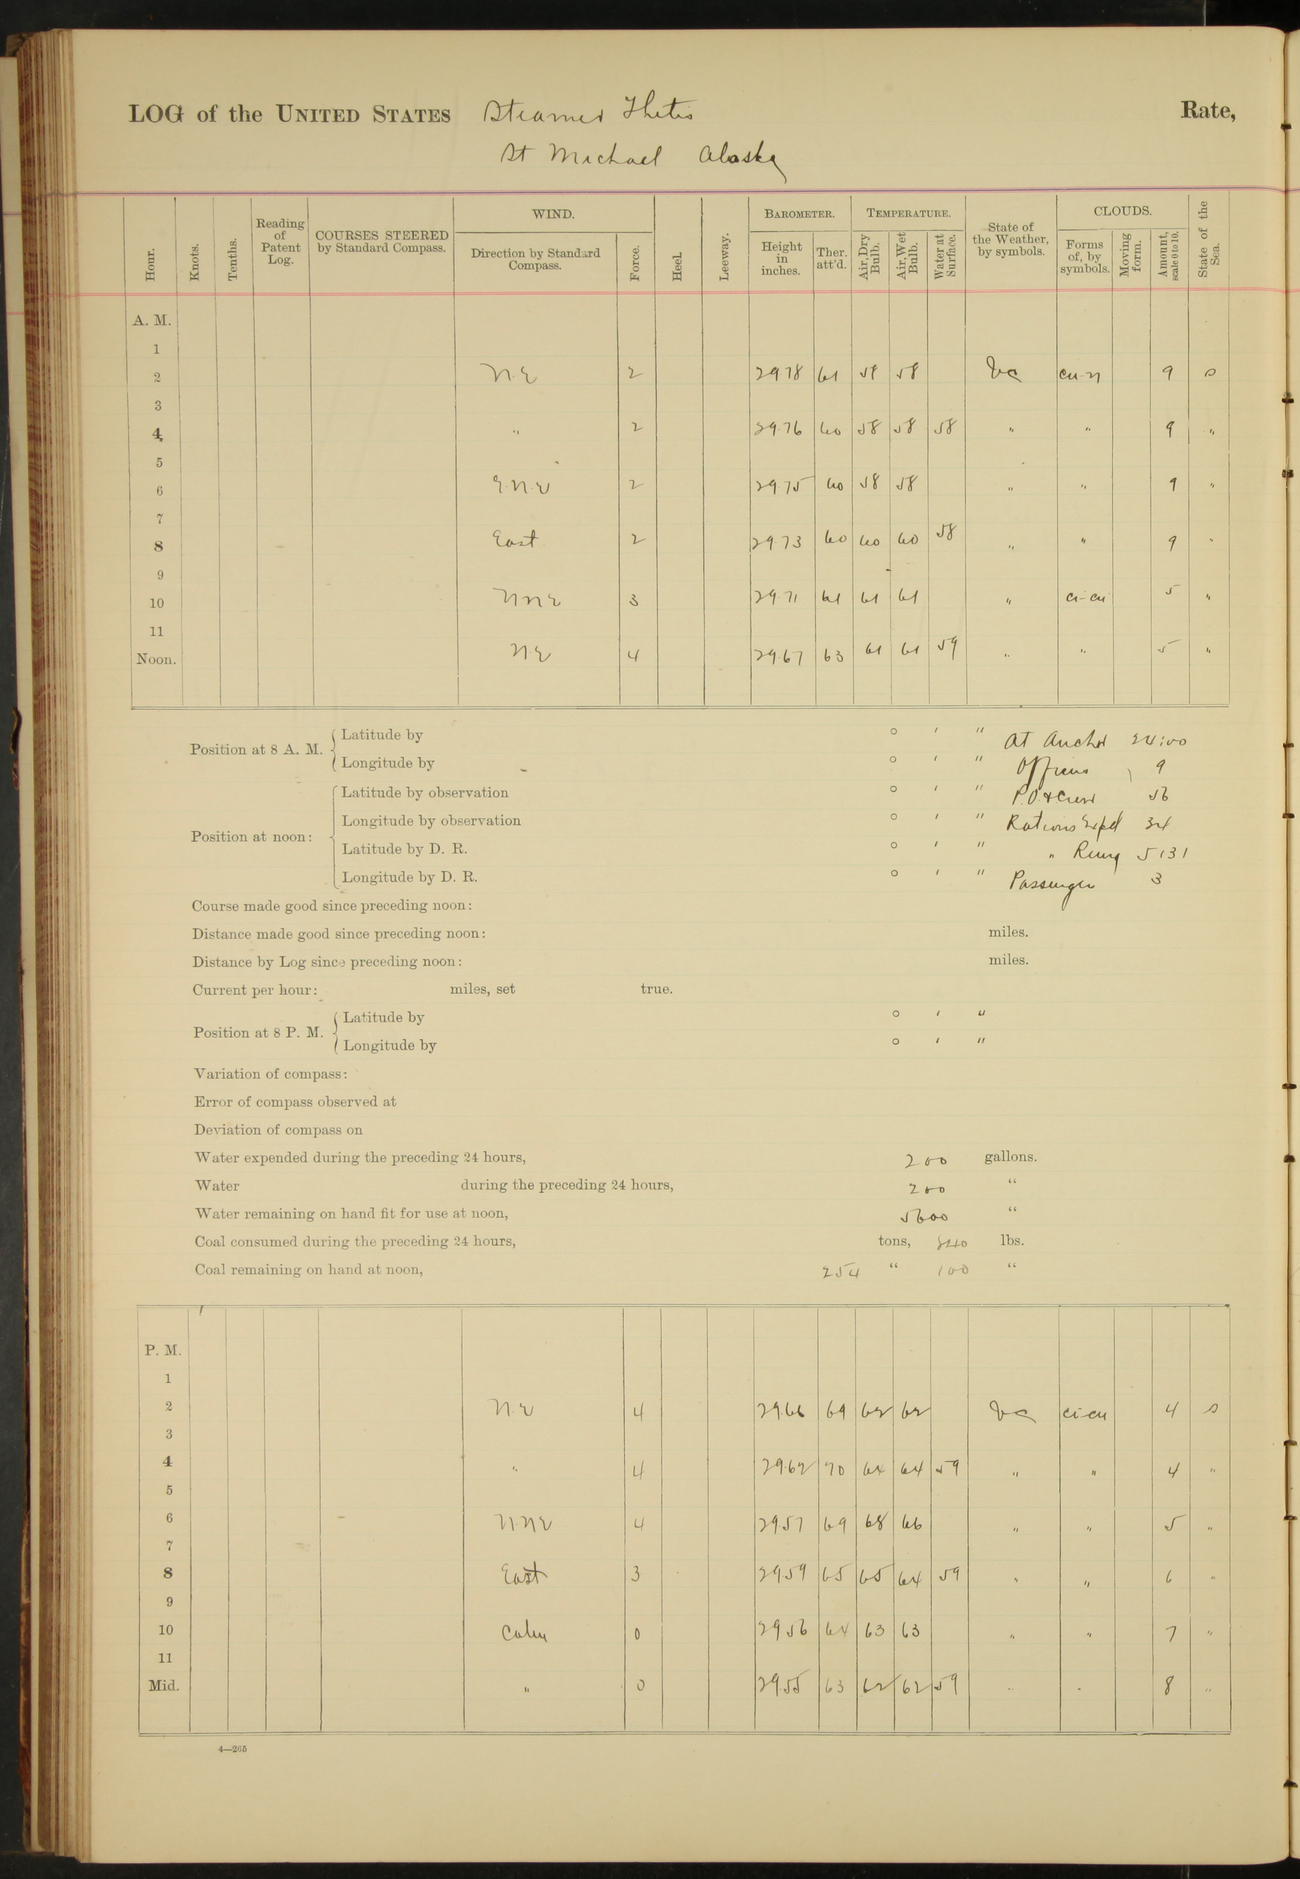 LOG of the UNITED STATES Steamer Thetis Rate,
St Michael Alaska
Hour. Knots. Tenths. Reading of Patent Log. COURSES STEERED by Standard Compass. WIND. Direction by Standard Compass. Force. Heel. Leeway. BAROMETER. Height in inches. Ther. att'd. TEMPERATURE. Air, Dry Bulb. Air, Wet Bulb. Water at Surface. State of the Weather, by symbols. CLOUDS. Forms of, by symbols. Moving form. Amount, scale 0 to 10. State of the Sea.
A. M.
1
2 N.E 2 29.78 61 58 58 bc cu-n 9 s
3
4 " 2 29.76 60 58 58 58 " " 9 "
5
6 ENE 2 29.75 60 58 58 " " 9 "
7
8 East 2 29.73 60 60 60 58 " " 9 "
9
10 NNE 3 29.71 61 61 61 " ci-cu 5 "
11
Noon. NE 4 29.67 63 61 61 59 " " 5 "
Position at 8 A. M. Latitude by ° ′ ″ At Anchor 24:00
Longitude by ° ′ ″ Officers 9
Position at noon: Latitude by observation ° ′ ″ P.O. & Crew 56
Longitude by observation ° ′ ″ Rations Expd 34
Latitude by D. R. ° ′ ″ " Remg 5131
Longitude by D. R. ° ′ ″ Passenger 3
Course made good since preceding noon:
Distance made good since preceding noon: miles.
Distance by Log since preceding noon: miles.
Current per hour: miles, set true.
Position at 8 P. M. Latitude by ° ′ ″
Longitude by ° ′ ″
Variation of compass:
Error of compass observed at
Deviation of compass on
Water expended during the preceding 24 hours, 200 gallons.
Water during the preceding 24 hours, 200 "
Water remaining on hand fit for use at noon, 5600 "
Coal consumed during the preceding 24 hours, tons, 840 lbs.
Coal remaining on hand at noon, 254 " 100 "
P. M.
1
2 N.E 4 29.66 69 62 62 bc ci-cu 4 s
3
4 " 4 29.62 70 64 64 59 " " 4 "
5
6 NNE 4 29.57 69 68 66 " " 5 "
7
8 East 3 29.59 65 65 64 59 " " 6 "
9
10 Calm 0 29.56 64 63 63 " " 7 "
11
Mid. " 0 29.55 63 62 62 59 " " 8 "
4—265